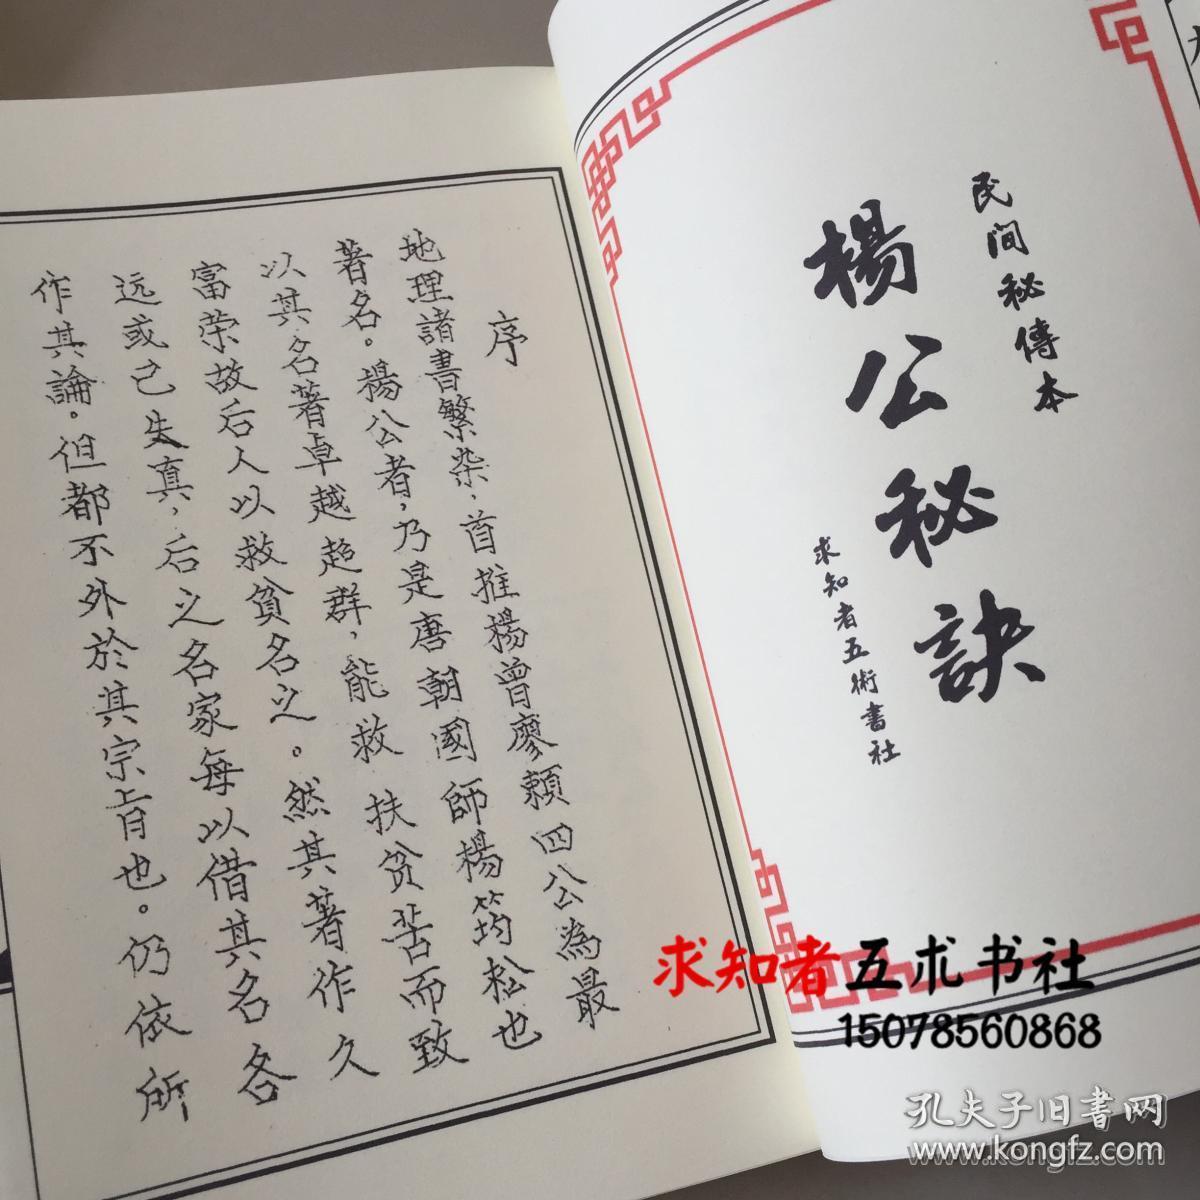 民间秘傳本
楊公秘訣
求知者五術書社
序
地理諸書繁杂，首推楊曾廖賴四公為最
著名。楊公者，乃是唐朝國師楊筠松也
以其名著卓越超群，能救扶贫苦而致
富荣故后人以救貧名之。然其著作久
远或己失真，后之名家每以借其名各
作其論。但都不外於其宗旨也。仍依所
求知者五术书社
15078560868
孔夫子旧書网
www.kongfz.com